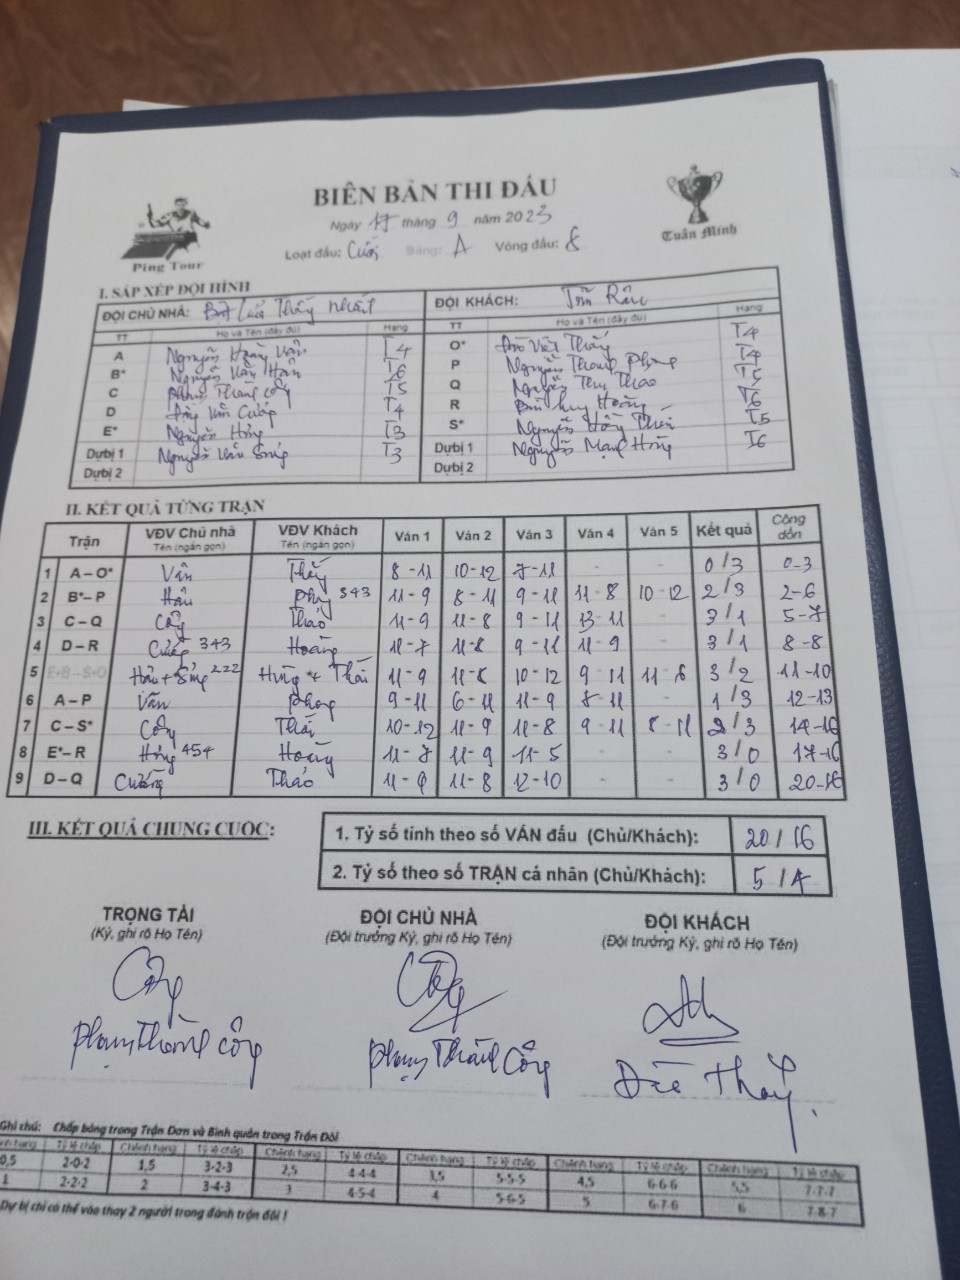 BIÊN BẢN THI ĐẤU
Ngày 17 tháng 9 năm 2023
Loạt đấu: Cuối Bảng: A Vòng đấu: 8
Ping Tour
Tuấn Minh
I. SẮP XẾP ĐỘI HÌNH
ĐỘI CHỦ NHÀ: Thấy Nhất ĐỘI KHÁCH: Tôm Râu
TT Họ và Tên (đầy đủ) Hạng TT Họ và Tên (đầy đủ) Hạng
A Nguyễn Hoàng Vân T4 O* Việt Thắng T4
B* Nguyễn Văn Hân T6 P Nguyễn Thanh Phong T4
C Phạm Thành Công T5 Q Nguyễn Thảo T5
D Văn Cường T4 R Bùi Huy Hoàng T6
E* Nguyễn Hưng T3 S* Nguyễn Hồng Thái T5
Dự bị 1 Nguyễn Văn T3 Dự bị 1 Nguyễn Mạnh Hùng T6
Dự bị 2 Dự bị 2
II. KẾT QUẢ TỪNG TRẬN
Trận VĐV Chủ nhà Tên (ngắn gọn) VĐV Khách Tên (ngắn gọn) Ván 1 Ván 2 Ván 3 Ván 4 Ván 5 Kết quả Cộng dồn
1 A – O* Vân 8 - 11 10 - 12 7 - 11 - - 0 / 3 0-3
2 B* – P Hân Phong 343 11 - 9 8 - 11 9 - 11 11 - 8 10 - 12 2 / 3 2-6
3 C – Q Công Thảo 11 - 9 11 - 8 9 - 11 13 - 11 - 3 / 1 5-7
4 D – R Cường 343 Hoàng 11 - 7 11 - 8 9 - 11 11 - 9 - 3 / 1 8-8
5 E+B – S+O Hân + 222 Hùng + Thái 11 - 9 11 - 8 10 - 12 9 - 11 11 - 6 3 / 2 11-10
6 A – P Vân Phong 9 - 11 6 - 11 11 - 9 7 - 11 - 1 / 3 12-13
7 C – S* Công Thái 10 - 12 11 - 9 11 - 8 9 - 11 8 - 11 2 / 3 14-16
8 E* – R Hưng 454 Hoàng 11 - 7 11 - 9 11 - 5 - - 3 / 0 17-16
9 D – Q Cường Thảo 11 - 9 11 - 8 12 - 10 - - 3 / 0 20-16
III. KẾT QUẢ CHUNG CUỘC:
1. Tỷ số tính theo số VÁN đấu (Chủ/Khách): 20 / 16
2. Tỷ số theo số TRẬN cá nhân (Chủ/Khách): 5 / 4
TRỌNG TÀI ĐỘI CHỦ NHÀ ĐỘI KHÁCH
(Ký, ghi rõ Họ Tên) (Đội trưởng Ký, ghi rõ Họ Tên) (Đội trưởng Ký, ghi rõ Họ Tên)
Phạm Thành Công Phạm Thành Công
Ghi chú: Chấp bóng trong Trận Đơn và Bình quân trong Trận Đôi
Chênh hạng Tỷ lệ chấp Chênh hạng Tỷ lệ chấp Chênh hạng Tỷ lệ chấp Chênh hạng Tỷ lệ chấp Chênh hạng Tỷ lệ chấp Chênh hạng Tỷ lệ chấp
0,5 2-0-2 1,5 3-2-3 2,5 4-4-4 3,5 5-5-5 4,5 6-6-6 5,5 7-7-7
1 2-2-2 2 3-4-3 3 4-5-4 4 5-6-5 5 6-7-6 6 7-8-7
Dự bị chỉ có thể vào thay 2 người trong đánh trận đôi !